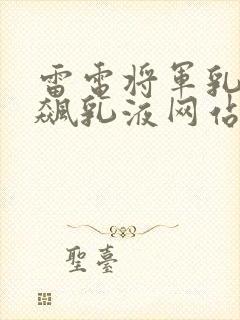 雷电将军乳
飙乳液网站
聖臺